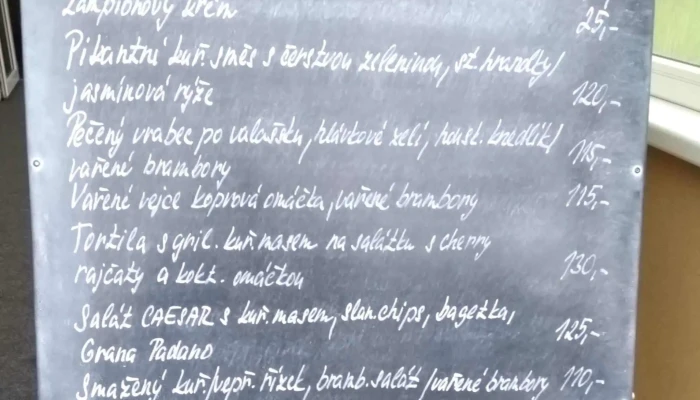 žampionový krém 25,-
Pikantní kuř. směs s čerstvou zeleninou, st. hranolky/
jasmínová rýže 120,-
Pečený vrabec po valašsku, hlávkové zelí, housk. knedlík/ 115,-
vařené brambory
Vařené vejce koprová omáčka, vařené brambory 115,-
Tortila s gril. kuř. masem na salátku s cherry
rajčaty a kokt. omáčkou 130,-
Salát CAESAR s kuř. masem, slan. chips, bagetka, 125,-
Grana Padano
Smažený kuř/vepř. řízek, bramb. salát /vařené brambory 110,-